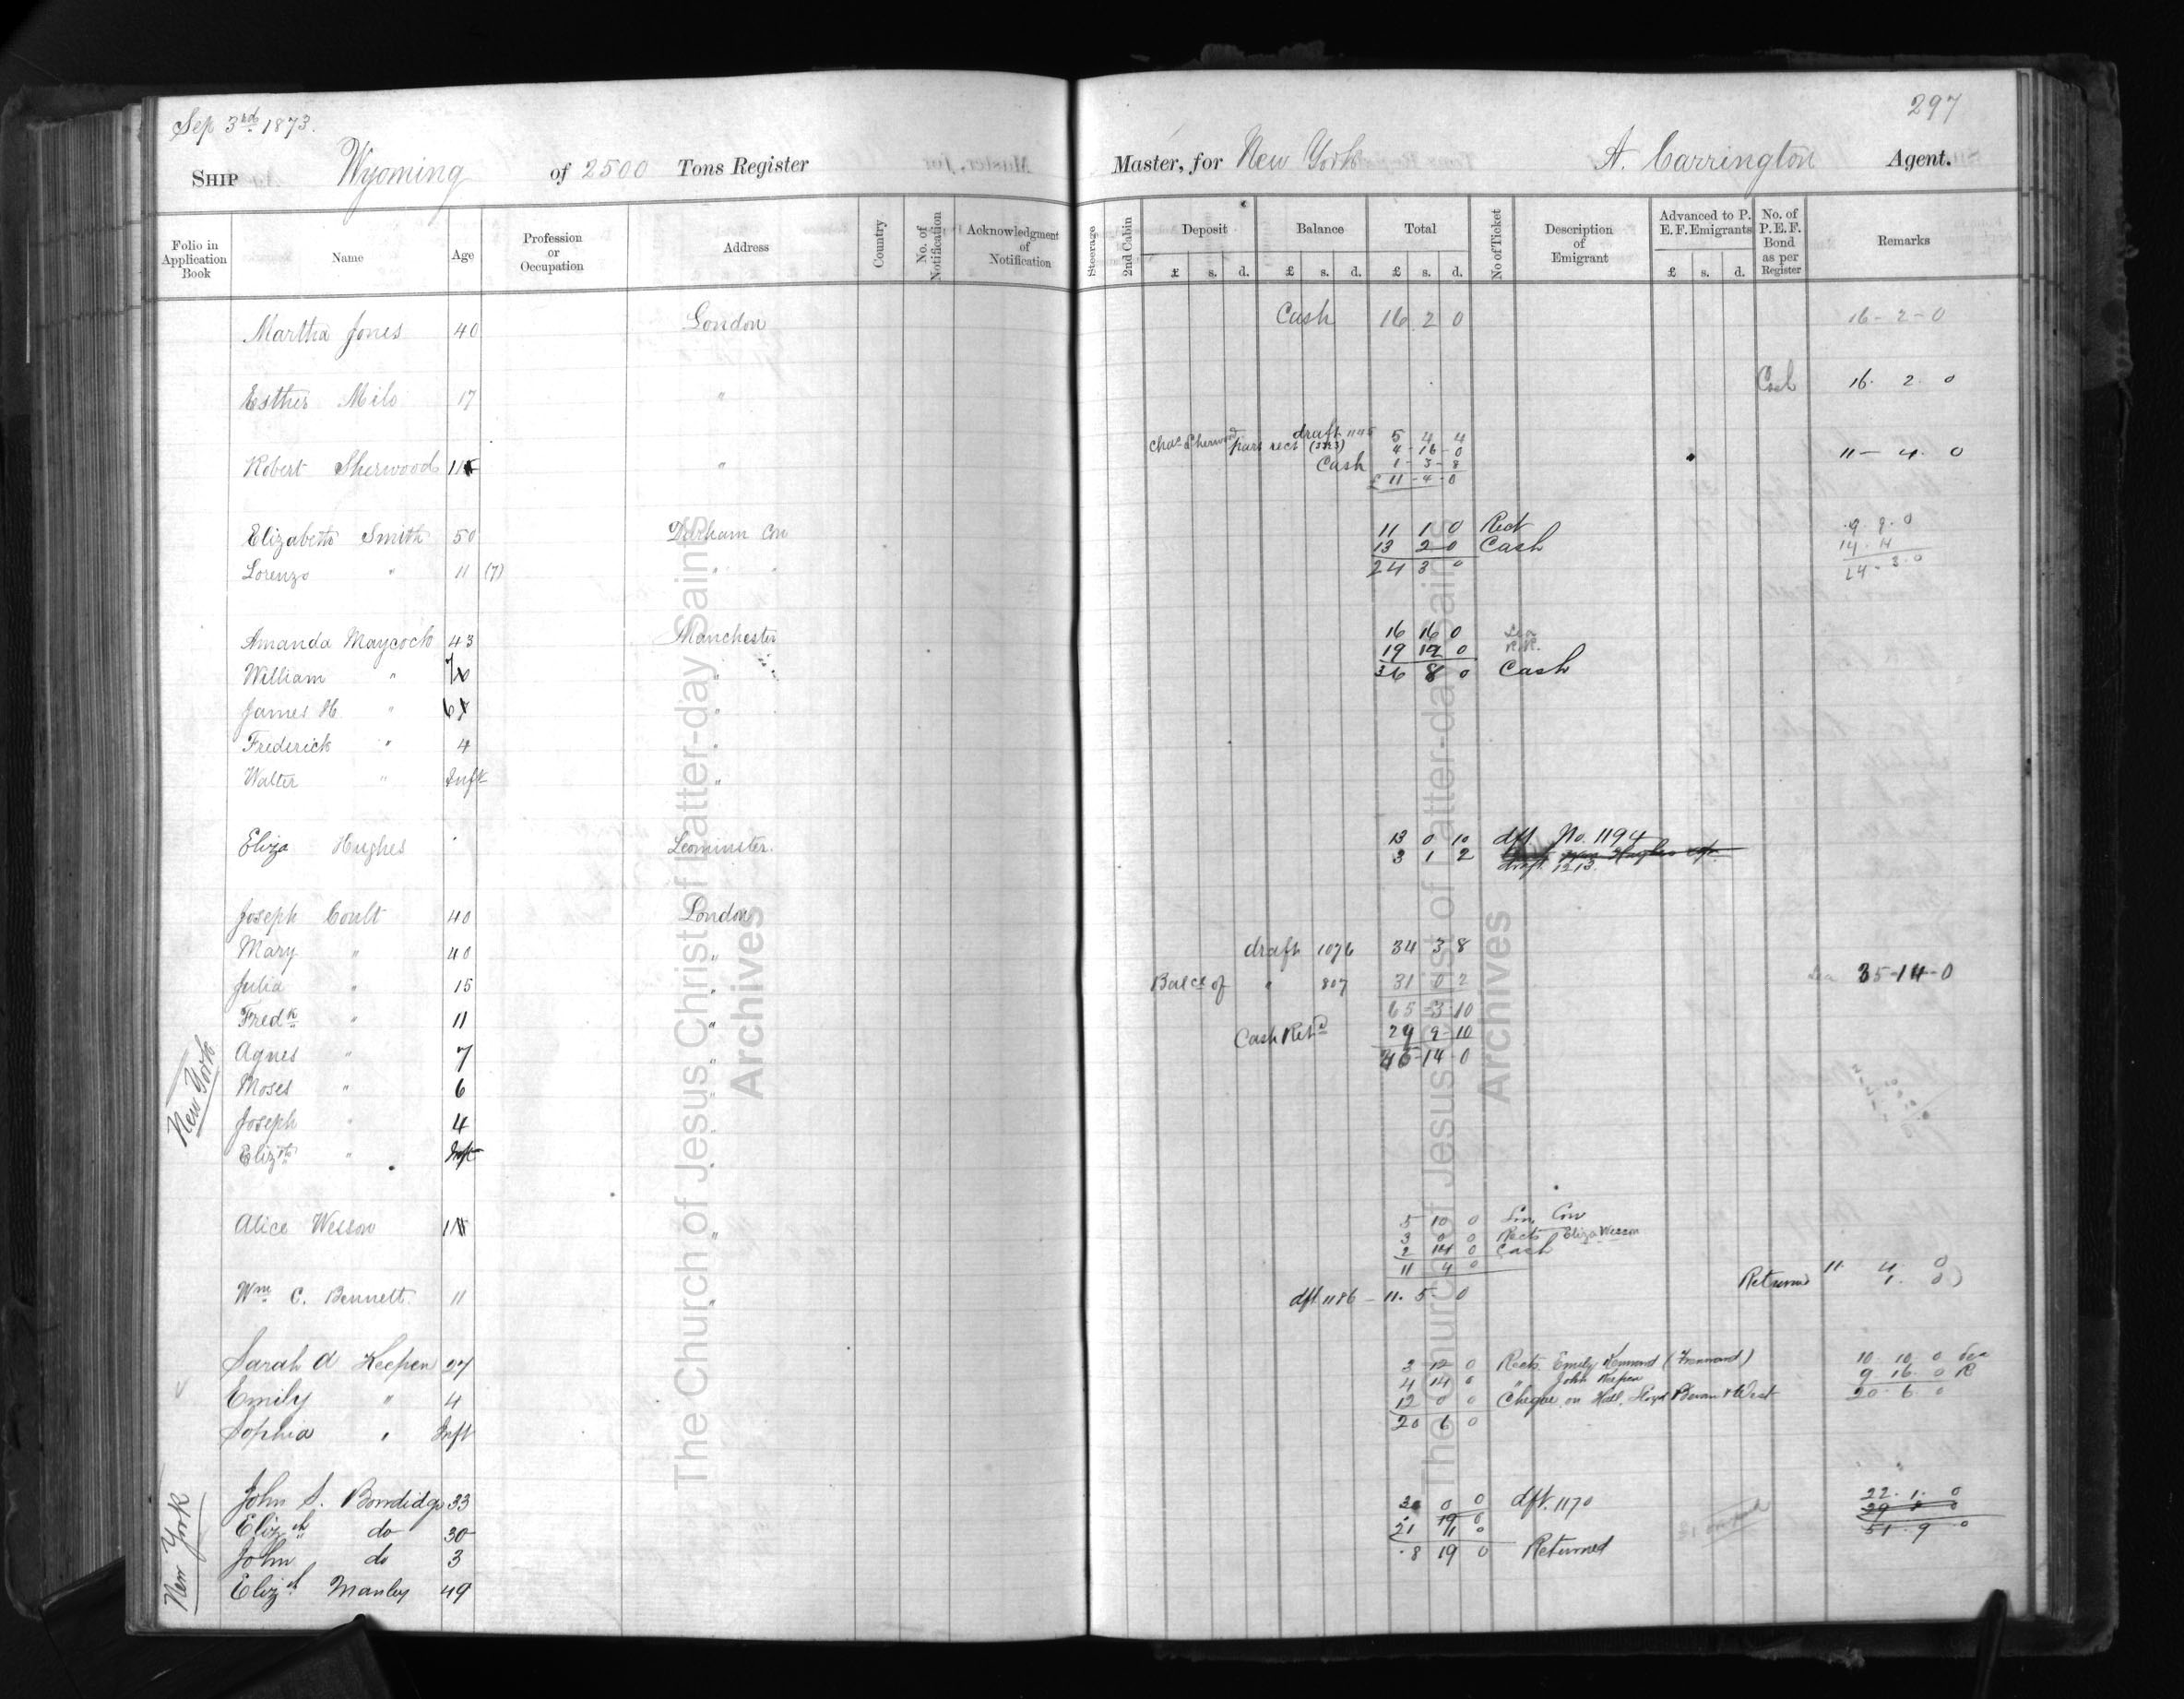 297
Sep 3rd 1873.
SHIP Wyoming of 2500 Tons Register Master, for New York A. Carrington Agent.
Folio in Application Book
Name
Age
Profession or Occupation
Address
Country
No. of Notification
Acknowledgment of Notification
Steerage
2nd Cabin
Deposit £ s. d.
Balance £ s. d.
Total £ s. d.
No of Ticket
Description of Emigrant
Advanced to P. E. F. Emigrants £ s. d.
No. of P.E.F. Bond as per Register
Remarks
Martha Jones 40 London Cash 16 2 0 16-2-0
Esther Milo 17 " Cash 16. 2. 0
draft 5 4 4
Chas Sherwood pars rect 4-16-0
Robert Sherwood 11 " Cash 1-3-8 11-4-0
£11-4-0
Elizabeth Smith 50 Durham Con 11 1 0 Rect
13 2 0 Cash
Lorenzo " 11 (7) " " 24 3 0 24-3-0
Amanda Maycock 43 Manchester 16 16 0
19 12 0
William " 7 " 36 8 0 Cash
James H " 6 "
Frederick " 4 "
Walter " Inft "
Eliza Hughes Leominster. 13 0 10 dft No. 1194
3 1 2
draft 1213.
Joseph Coult 40 London
Mary " 40 " draft 1076 34 3 8
Julia " 15 " Balce of " 807 31 0 2 35-14-0
Fredk " 11 " 65-3-10
Agnes " 7 " Cash Retd 29 9-10
14 0
Moses " 6 "
Joseph " 4 "
Elizth " Inft "
New York
Alice Wesson 11 " 5 10 0 Con
3 0 0 Rects Eliza Wesson
2 14 0 Cash
11 4 0
Wm C. Bennett 11 " dft 1186 - 11. 5. 0 11 4 0
Returned 1. 0
Sarah A Keepen 27 3 12 0 Rects Emily 10 10 0 Sea
4 14 0 " John Keepen 9 16 0 R
Emily " 4 12 0 0 Cheque on Hall, Lloyd Bevan & West 20 6 0
Sophia " Inft 20 6 0
John S. 33 0 0 dft. 1170 22. 1. 0
Elizth do 30 51. 9 0
John do 3 8 19 0 Returned
Elizth Manley 49
New York
The Church of Jesus Christ of Latter-day Saints
Archives
The Church of Jesus Christ of Latter-day Saints
Archives